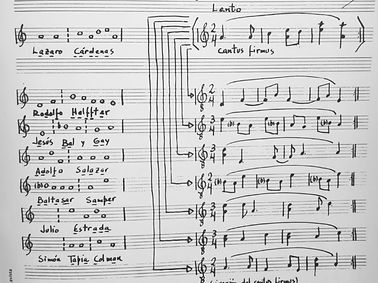 Lento
Lazaro Cárdenas
cantus firmus
Rodolfo Halffter
Jesús Bal y Gay
Adolfo Salazar
Baltasar Samper
Julio Estrada
Simón Tapia Colman
del cantus firmus)